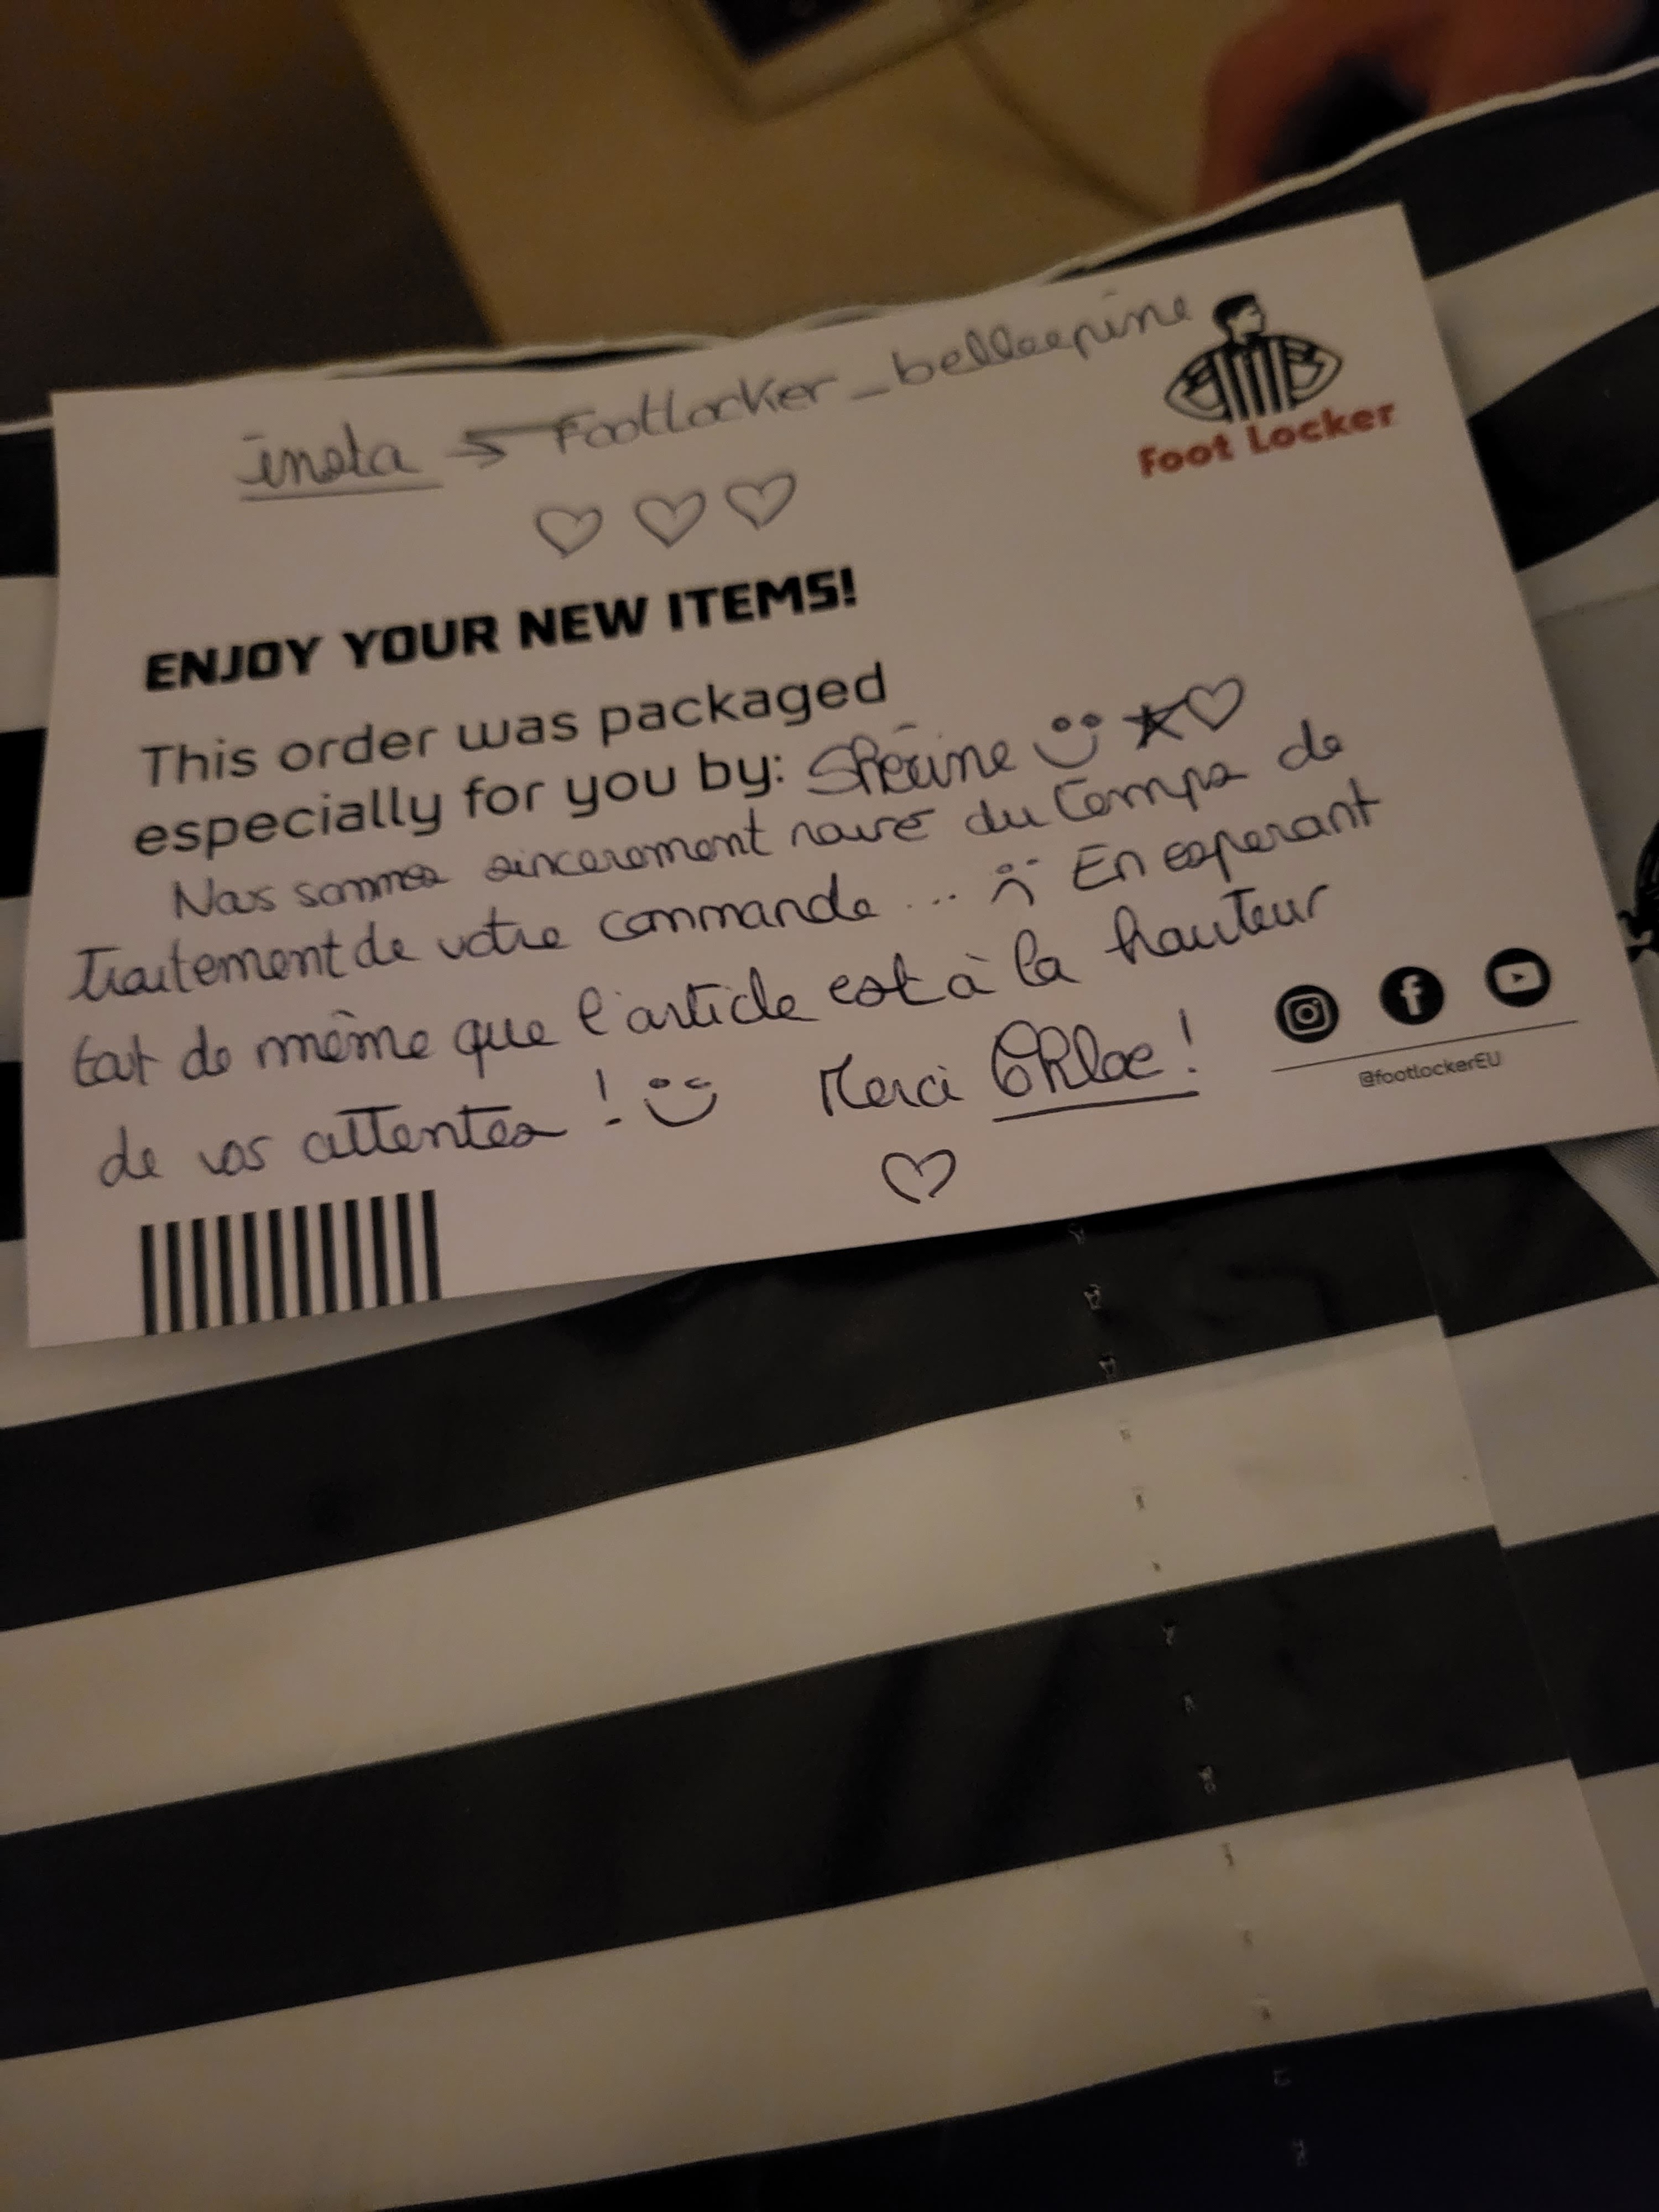 insta → Footlocker_belleepine
♡ ♡ ♡
Foot Locker
ENJOY YOUR NEW ITEMS!
This order was packaged
especially for you by: Shérine
Nous sommes sincerement navré du Temps de
Traitement de votre commande ... En esperant
tout de même que l'article est à la hauteur
de vos attentes ! Merci Chloe !
♡
@footlockerEU